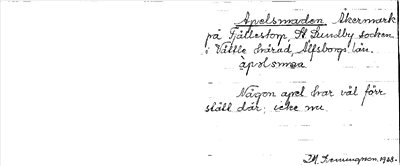 Apelsmaden Åkermark
på Fjällestorp, St Lundby socken
i Vättle härad, Älfsborgs län.
àpəlsmɷa
Någon apel har väl förr
ställ där, icke nu.
1923.